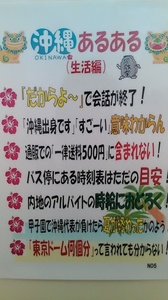 沖縄あるある
OKINAWA
(生活編)
「だからよ～」で会話が終了！
「沖縄出身です」「すごーい」意味わからん
通販での「一律送料500円」に含まれない！
バス停にある時刻表はただの目安
内地のアルバイトの時給におどろく
甲子園で沖縄代表が負けたら夏が終わったかのよう
「東京ドーム何個分」って言われても分からない！
NOS